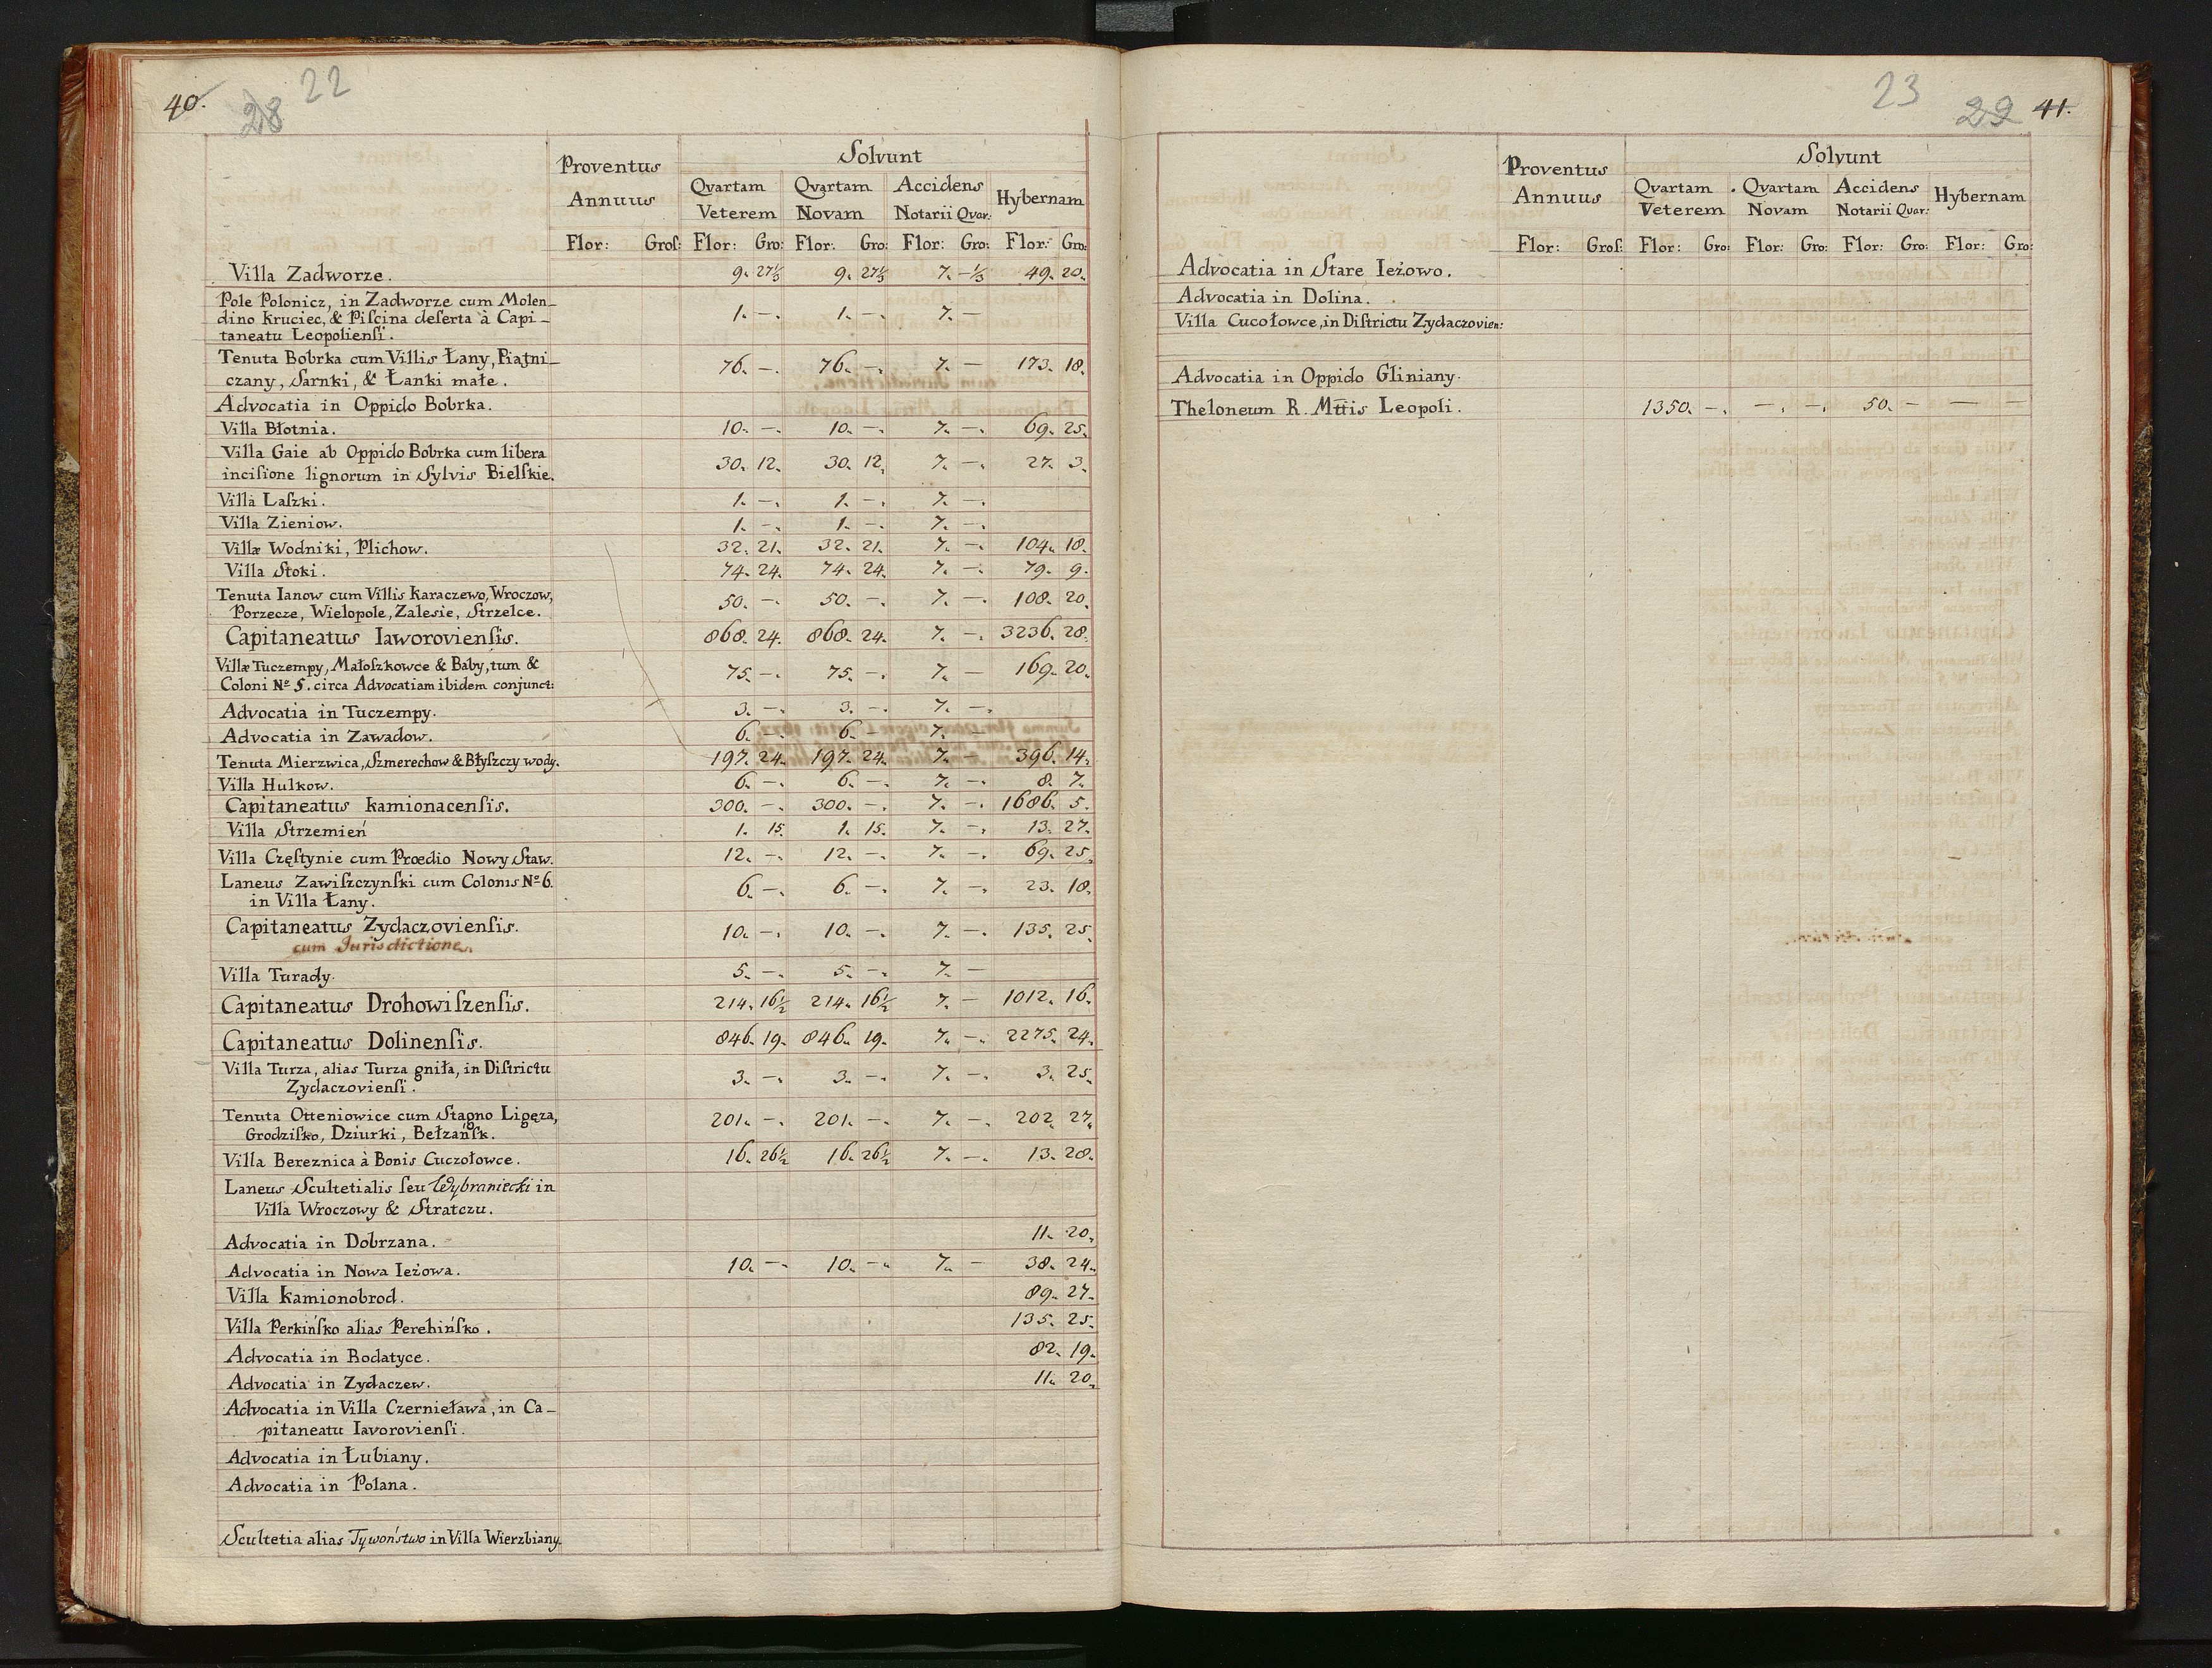 40.
28
22
Proventus Annuus
Solvunt
Qvartam Veterem
Qvartam Novam
Accidens Notarii Qvar:
Hybernam
Flor: Groſ: Flor: Gro: Flor: Gro: Flor: Gro: Flor: Gro:
Villa Zadworze. 9. 27⅓ 9. 27⅓ 7. – ⅓ 49. 20.
Pole Polonicz, in Zadworze cum Molen–
dino Kruciec, & Piſcina deſerta à Capi– 1. –. 1. –. 7. –
taneatu Leopolienſi.
Tenuta Bobrka cum Villis Łany, Piątni– 76. –. 76. –. 7. – 173. 18.
czany, Sarnki, & Łanki małe.
Advocatia in Oppido Bobrka.
Villa Błotnia. 10. –. 10. –. 7. –. 69. 25.
Villa Gaie ab Oppido Bobrka cum libera 30. 12. 30. 12. 7. –. 27. 3.
inciſione lignorum in Sylvis Bielſkie.
Villa Laſzki. 1. –. 1. –. 7. –.
Villa Zieniow. 1. –. 1. –. 7. –.
Villæ Wodniki, Plichow. 32. 21. 32. 21. 7. –. 104. 18.
Villa Stoki. 74. 24. 74. 24. 7. –. 79. 9.
Tenuta Ianow cum Villis Karaczewo, Wroczow, 50. –. 50. –. 7. –. 108. 20.
Porzecze, Wielopole, Zalesie, Strzelce.
Capitaneatus Iaworovienſis. 868. 24. 868. 24. 7. –. 3236. 28.
Villæ Tuczempy, Małoſzkowce & Baby, tum & 75. –. 75. –. 7. – 169. 20.
Coloni Nº 5. circa Advocatiam ibidem conjunct:
Advocatia in Tuczempy. 3. –. 3. –. 7. –.
Advocatia in Zawadow. 6. –. 6. – 7. –
Tenuta Mierzwica, Szmerechow & Błyſzczy wody. 197. 24. 197. 24. 7. – 396. 14.
Villa Hulkow. 6. –. 6. –. 7. –. 8. 7.
Capitaneatus Kamionacenſis. 300. –. 300. –. 7. –. 1686. 5.
Villa Strzemień 1. 15. 1. 15. 7. –. 13. 27.
Villa Częſtynie cum Prœdio Nowy Staw. 12. –. 12. –. 7. –. 69. 25.
Laneus Zawiſzczynſki cum Colonis Nº 6. 6. –. 6. –. 7. –. 23. 18.
in Villa Łany.
Capitaneatus Zydaczovienſis. 10. –. 10. –. 7. –. 135. 25.
cum Jurisdictione.
Villa Turady. 5. –. 5. –. 7. –
Capitaneatus Drohowiſzenſis. 214. 16½ 214. 16½ 7. – 1012. 16.
Capitaneatus Dolinenſis. 846. 19. 846. 19. 7. –. 2275. 24.
Villa Turza, alias Turza gniła, in Diſtrictu 3. –. 3. –. 7. –. 3. 25.
Zydaczovienſi.
Tenuta Otteniowice cum Stagno Ligęza, 201. –. 201. –. 7. –. 202. 27.
Grodziſko, Dziurki, Bełzańſk.
Villa Bereznica à Bonis Cuczołowce. 16. 26½ 16. 26½ 7. –. 13. 28.
Laneus Scultetialis ſeu Wybraniecki in
Villa Wroczowy & Stratczu.
Advocatia in Dobrzana. 11. 20.
Advocatia in Nowa Ieżowa. 10. –. 10. –. 7. – 38. 24.
Villa Kamionobrod. 89. 27.
Villa Perkińſko alias Perehińſko. 135. 25.
Advocatia in Rodatyce. 82. 19.
Advocatia in Zydaczew. 11. 20.
Advocatia in Villa Czernieława, in Ca–
pitaneatu Iavorovienſi.
Advocatia in Łubiany.
Advocatia in Polana.
Scultetia alias Tywoństwo in Villa Wierzbiany.
23
29
41.
Proventus Annuus
Solvunt
Qvartam Veterem
Qvartam Novam
Accidens Notarii Qvar:
Hybernam
Flor: Groſ: Flor: Gro: Flor: Gro: Flor: Gro: Flor: Gro:
Advocatia in Stare Ieżowo.
Advocatia in Dolina.
Villa Cucołowce, in Diſtrictu Zydaczovien:
Advocatia in Oppido Gliniany.
Theloneum R. Mttis Leopoli. 1350. –. –. –. 50. – – –